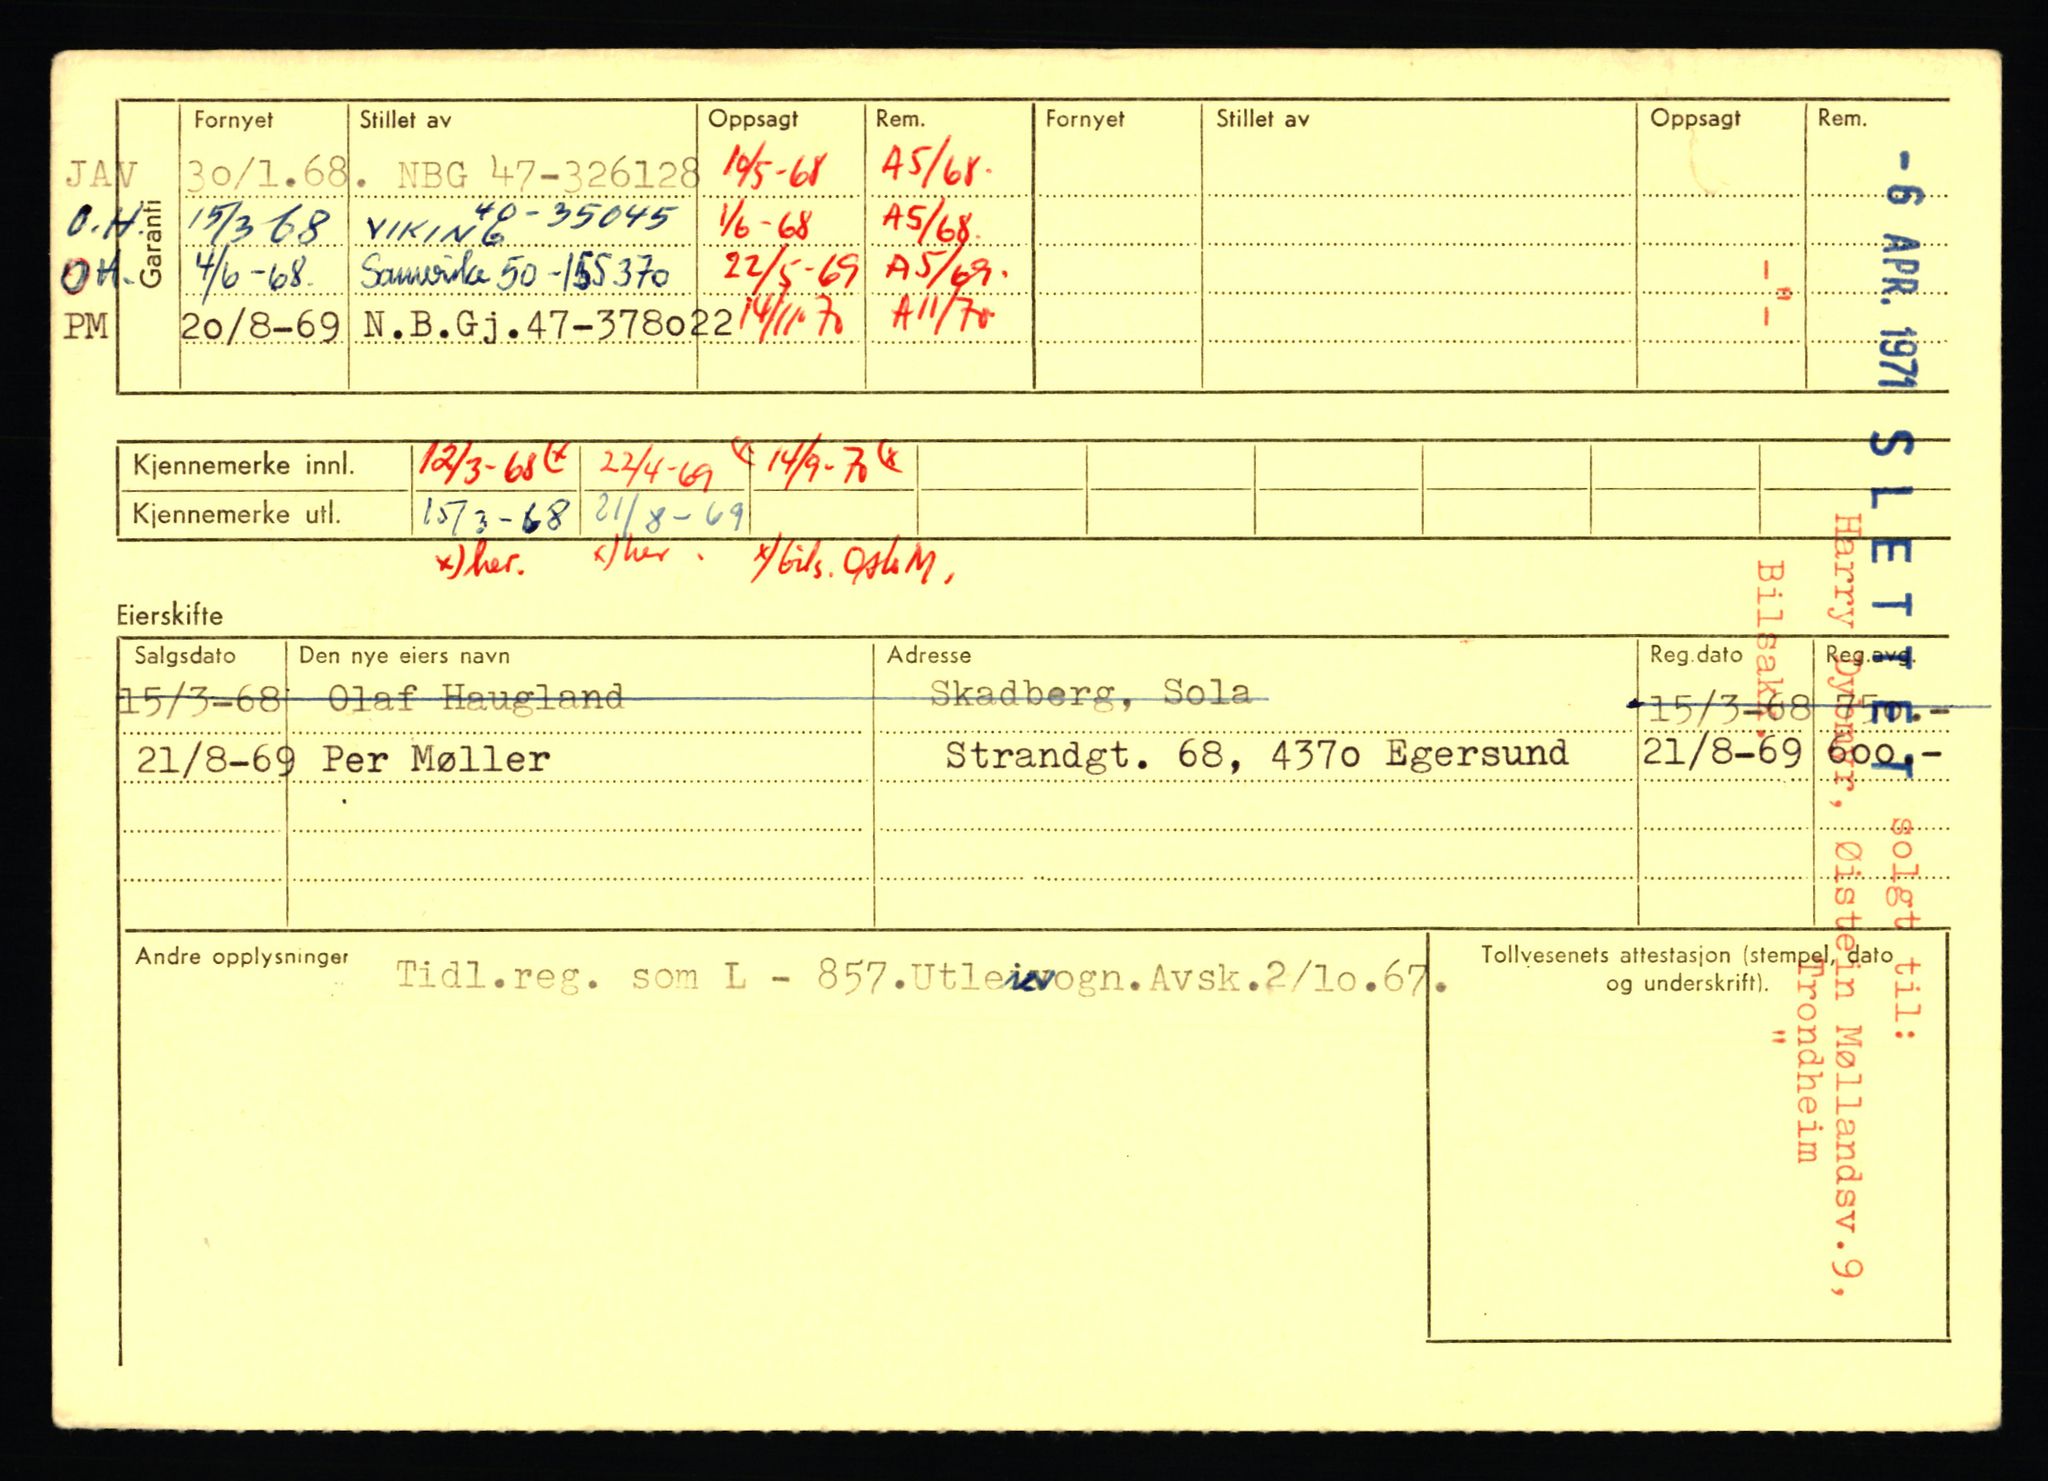 Garanti
Fornyet Stillet av Oppsagt Rem. Fornyet Stillet av Oppsagt Rem.
JAV 30/1.68. NBG 47-326128 10/5-68 A5/68.
O.H. 15/3 68 VIKING 40-35045 1/6-68 A5/68.
OH. 4/6-68. 50-155370 22/5-69 A5/69.
PM 20/8-69 N.B.Gj.47-378022 14/11-70 A11/70
Kjennemerke innl. 12/3-68 (x 22/4-69 (x 14/9-70 (x
Kjennemerke utl. 15/3-68 21/8-69
x) her. x) her. x) bils.
Eierskifte
Salgsdato Den nye eiers navn Adresse Reg.dato Reg.avg.
15/3-68 Olaf Haugland Skadberg, Sola 15/3-68 750.-
21/8-69 Per Møller Strandgt. 68, 4370 Egersund 21/8-69 600.-
Andre opplysninger Tidl.reg. som L - 857.Utleievogn.Avsk.2/10.67.
Tollvesenets attestasjon (stempel, dato
og underskrift).
- 6 APR. 1971 SLETTET solgt til:
Harry Øistein Møllandsv.9,
Trondheim
-"- Bilsakk. "